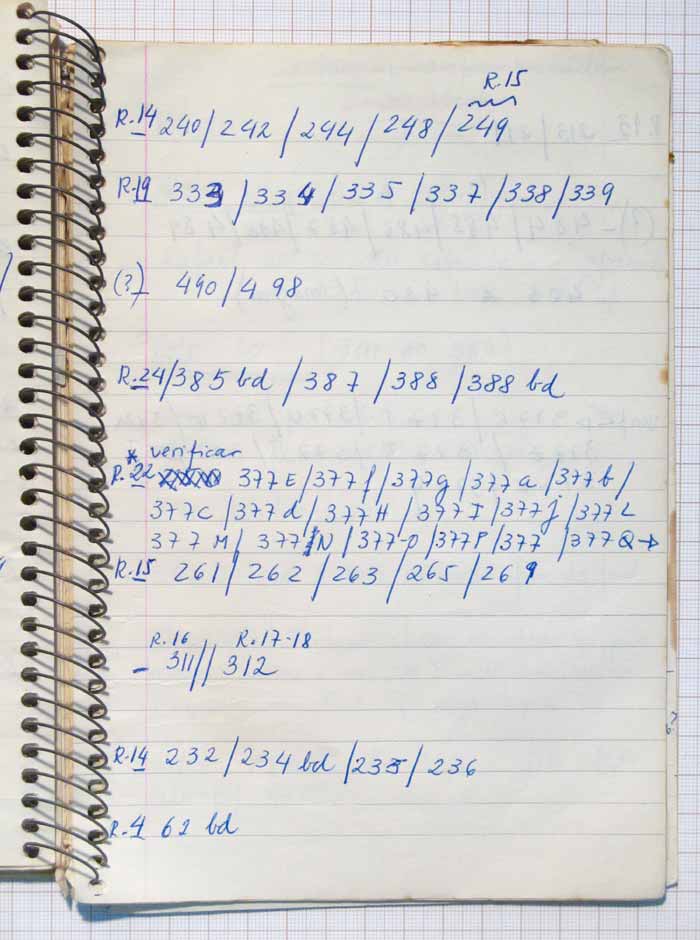 R.15
R.14 240 / 242 / 244 / 248 / 249
R.19 333 / 334 / 335 / 337 / 338 / 339
(?) 490 / 498
R.24/385 bd / 387 / 388 / 388 bd
* verificar
R.22 377E / 377f / 377g / 377a / 377b /
377C / 377d / 377H / 377I / 377j / 377L
377M / 377N / 377-O / 377P / 377 / 377Q →
R.15 261 / 262 / 263 / 265 / 269
R.16 R.17-18
- 311 // 312
R.14 232 / 234 bd / 235 / 236
R.4 62 bd